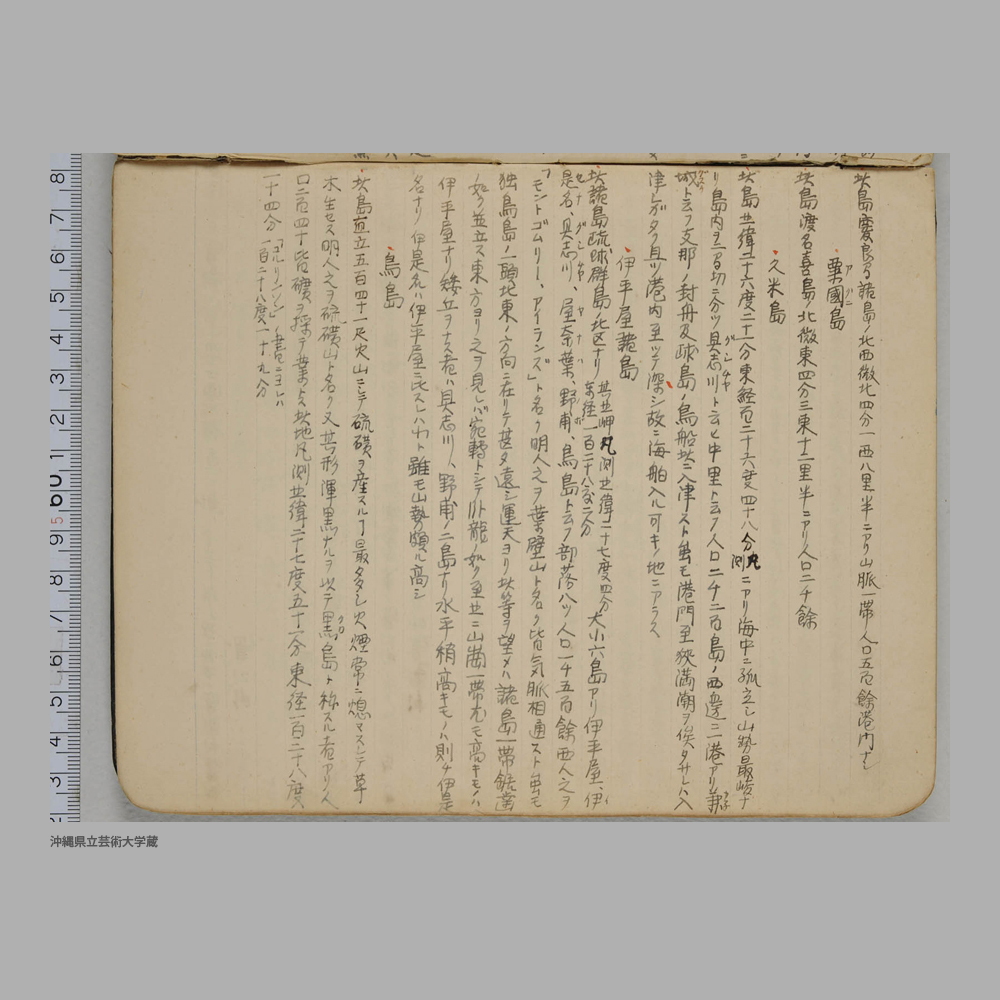 此島慶良間諸島ノ北西微北四分一西八里半ニアリ山脈一帯人口五百餘港門ナシ
粟國島
アクニ
此島渡名喜島ノ北微東四分三東十一里半ニアリ人口二千餘
久米島
此島北緯二十六度二十一分東経百二十六度四十八分丸測ニアリ海中ニ孤立シ山勢最峻ナ
リ島内ヲ二間切ニ分ツ具志川ト云ヒ中里ト云フ人口二千二百島ノ西邊ニ二港アリ
城ト云フ支那ノ封舟及球島ノ烏船此ニ入津スト虽モ港門至狹満潮ヲ俟タサレハ入
津シガタク且ツ港内至ツテ深シ故ニ海舶入ル可キノ地ニアラス
伊平屋諸島
此諸島琉球群島ノ北区ナリ其北岬丸測北緯二十七度四分東経一百二十八度六分大小六島アリ伊平屋、伊
是名、具志川、屋奈葉、野甫、鳥島ト云フ部落八ツ人口一千五百餘西人之ヲ
「モントゴムリー、アイランズ」ト名ク明人之ヲ葉壁山ト名ク皆気脈相通スト虽モ
独鳥島ノ一頭北東ノ方向ニ在リテ甚タ遠シ運天ヨリ此等ヲ望メハ諸島一帯鋸歯
ノ如ク並立ス東方ヨリ之ヲ見レバ宛轉トシテ臥龍ノ如ク至北ニ山崗一帯尤モ高キモノハ
伊平屋ナリ矮丘ヲナス者ハ具志川、野甫ノ二島ナリ水平稍高キモノハ則チ伊是
名ナリ伊是名ハ伊平屋ニ比スレハ小ト雖モ山勢頗ル高シ
鳥島
此島直立五百四十一尺火山ニシテ硫磺ヲ産スルヿ最多シ火煙常ニ熄マスシテ草
木生セス明人之ヲ硫磺山ト名ク又其形渾黒ナルヲ以テ黒島ト称スル者アリ人
口二百四十皆磺ヲ採テ業トス此地丸測北緯二十七度五十一分東経一百二十八度
一十四分「コルリンソン」ノ書ニヨレハ一百二十八度一十九分
沖縄県立芸術大学蔵